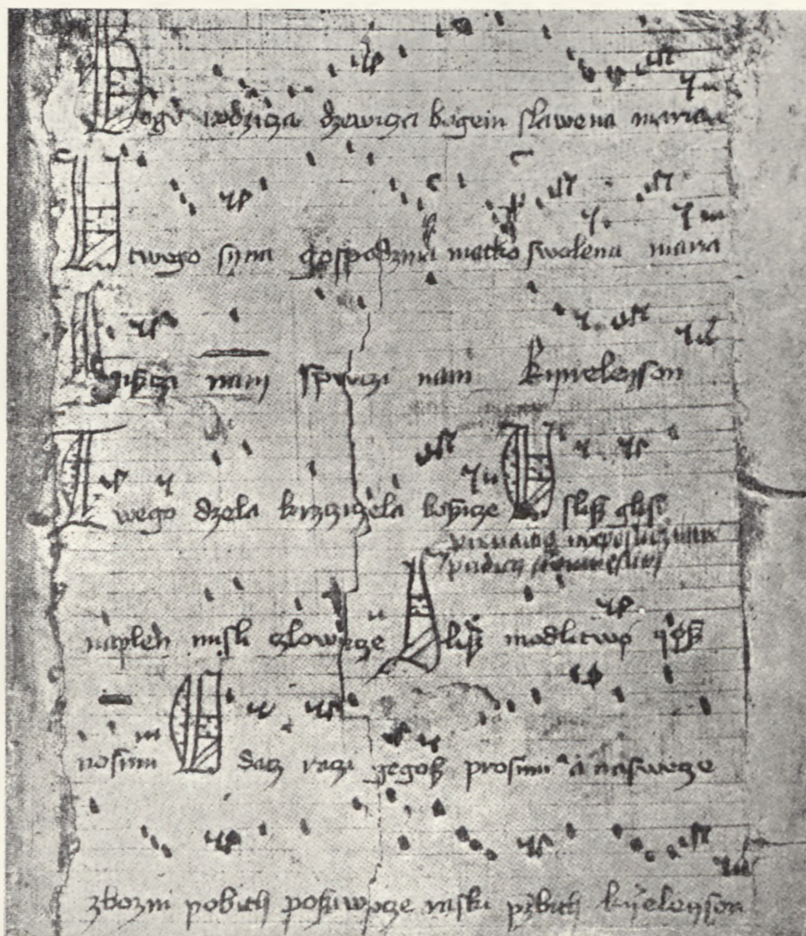 Bogu rodzicza dzewicza bogem slawena maria
U twego syna gospodzina matko swolena maria
Siszczi nam spwczi nam Kyrieleyson
Twego dzela krzcziczela boszicze Usslisz glosi
naplen misli czlowecze slisz modlitwo iosz
nosimi Odacz raczi gegosz prosimi a naswecze
zbozni pobith posziwocze raski przebith kyrieleyson